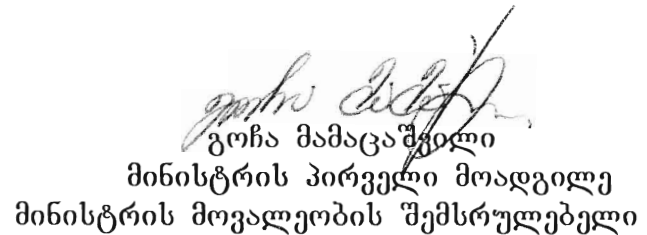 გოჩა მამაცაშვილი
მინისტრის პირველი მოადგილე
მინისტრის მოვალეობის შემსრულებელი